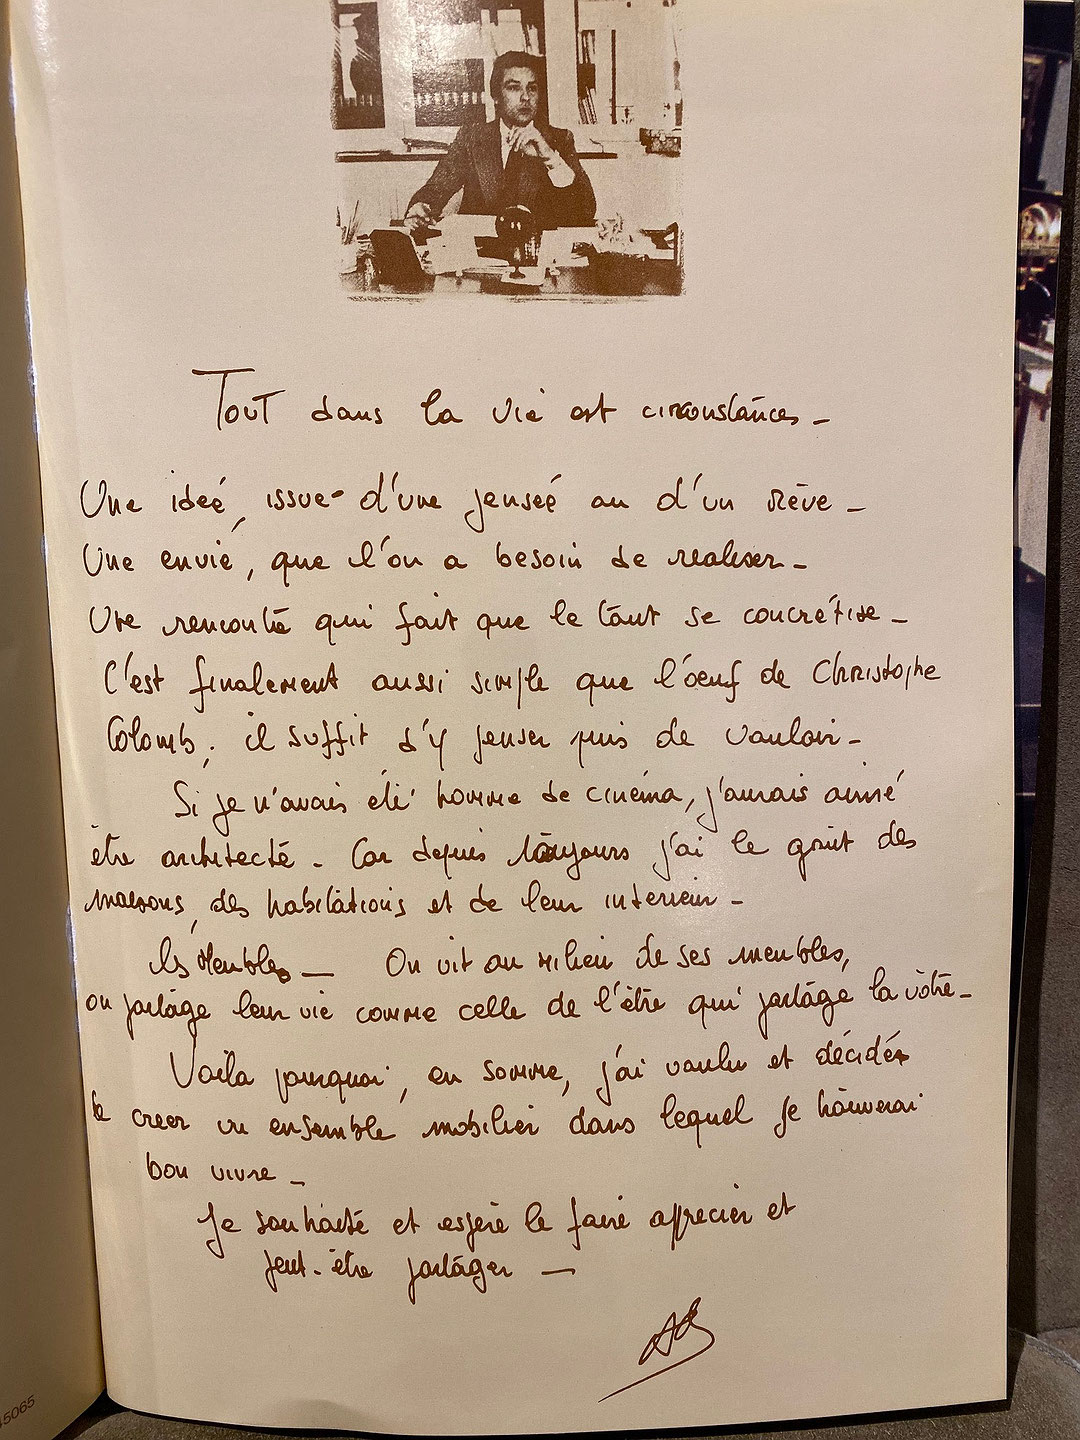 Tout dans la vie est circonstances -
Une ideé, issue d'une penseé ou d'un rêve -
Une envie, que l'on a besoin de realiser -
Une rencontre qui fait que le tout se concrétise -
C'est finalement aussi simple que l'oeuf de Christophe
Colomb; il suffit d'y penser puis de vouloir -
Si je n'avais été homme de cinéma, j'aurais aimé
être architecte - Car depuis toujours j'ai le goût des
maisons, des habitations et de leur interieur -
les Meubles - On vit au milieu de ses meubles,
on partage leur vie comme celle de l'être qui partage la vôtre -
Voila pourquoi, en somme, j'ai voulu et décidér
de creer un ensemble mobilier dans lequel je trouverai
bon vivre -
Je souhaite et espère le faire apprecier et
peut-être partager -
AD
45065